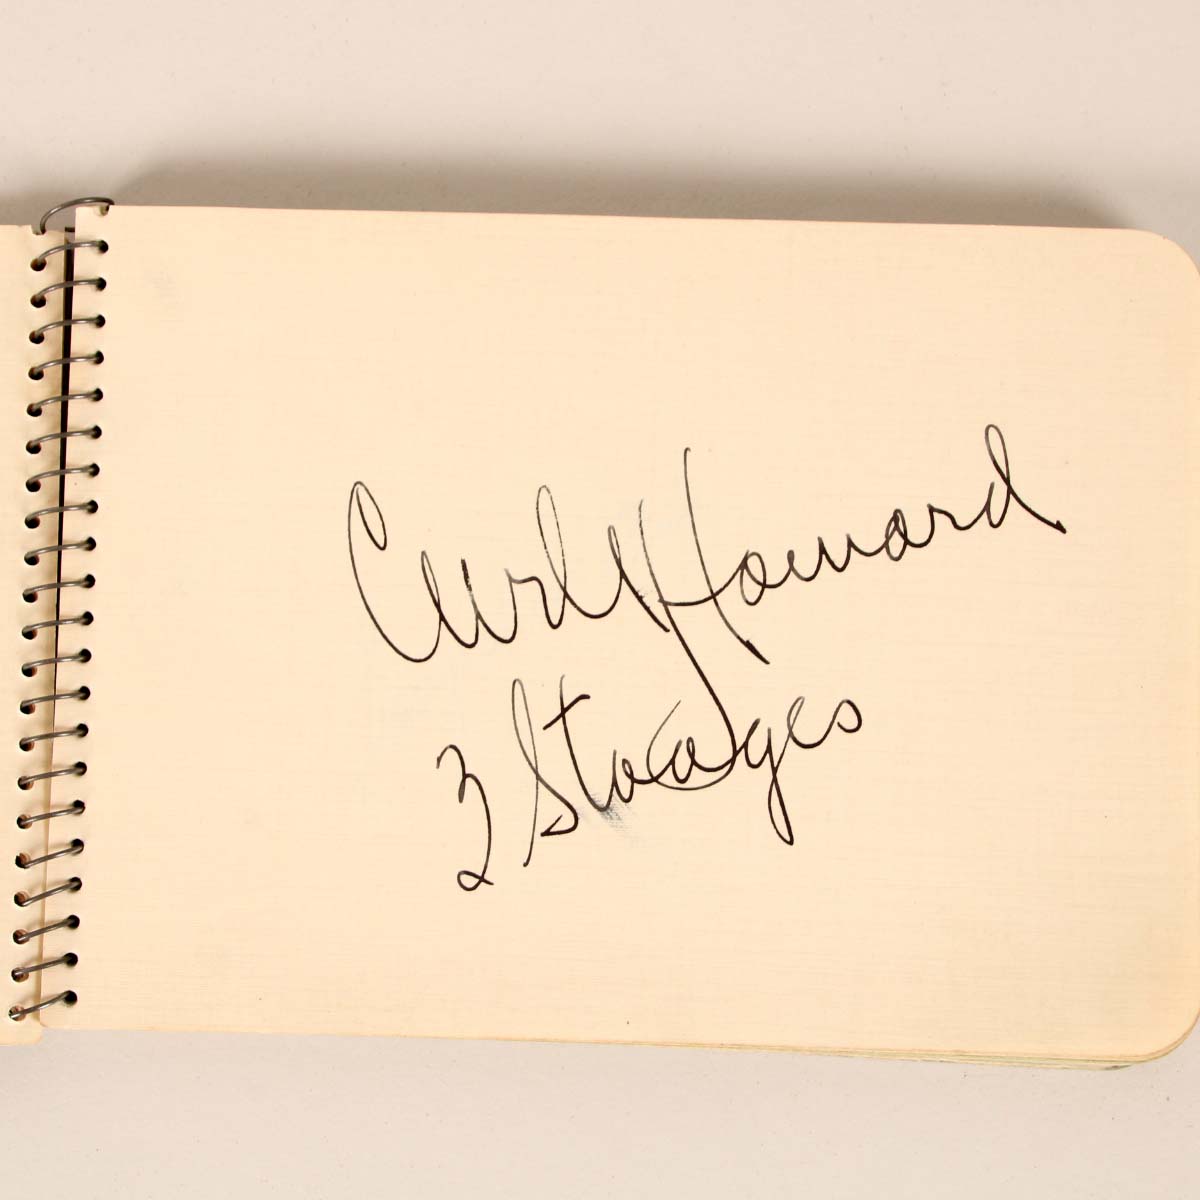 Curly Howard
3 Stooges